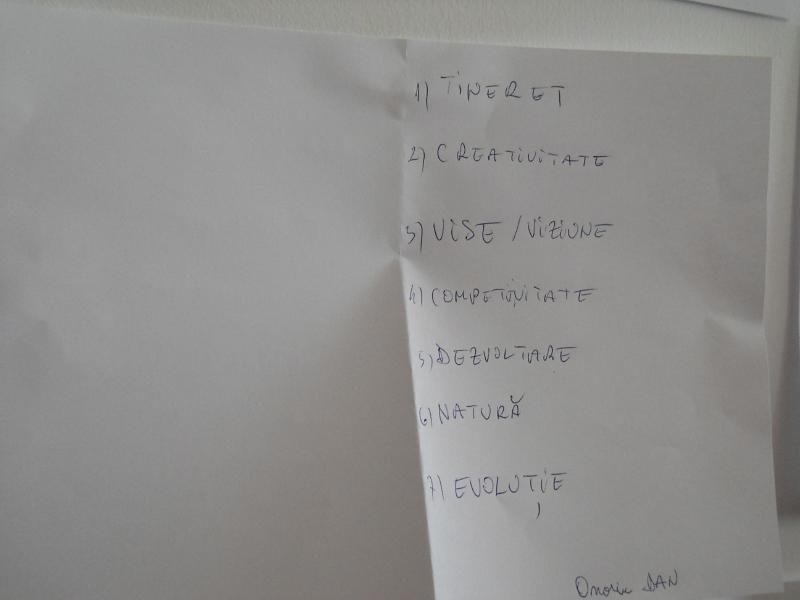 1) TINERET
2) CREATIVITATE
3) VISE / VIZIUNE
4) COMPETIVITATE
5) DEZVOLTARE
6) NATURĂ
7) EVOLUȚIE
DAN